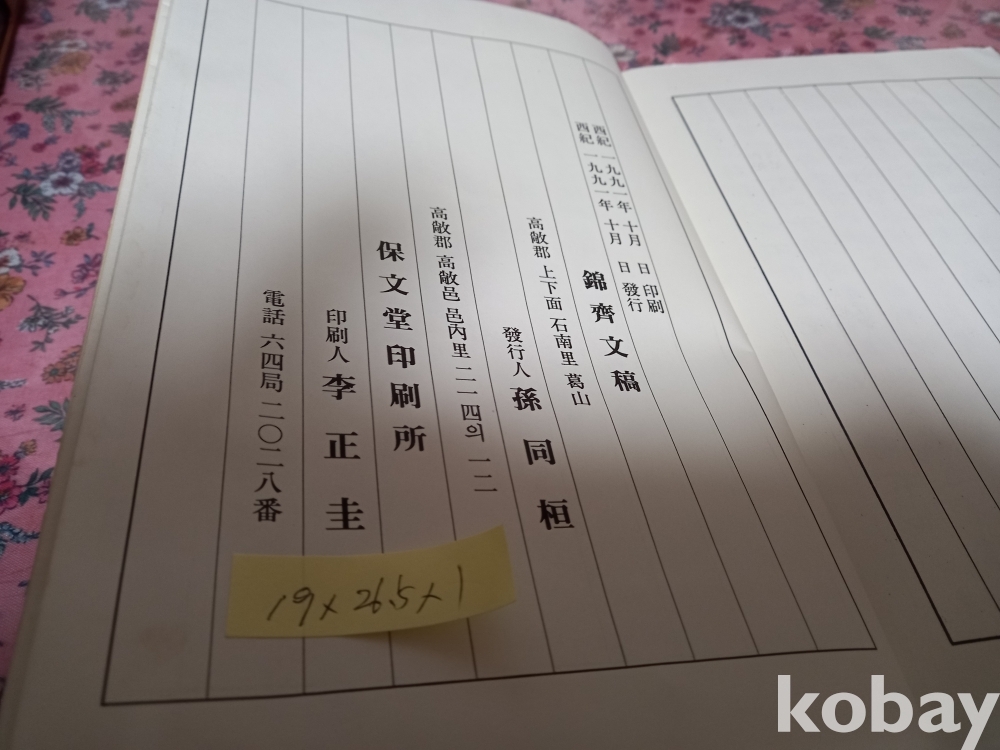 西紀 一九九一年 十月 日 印刷
西紀 一九九一年 十月 日 發行
錦齊文稿
高敞郡 上下面 石南里 葛山
發行人 孫同桓
高敞郡 高敞邑 邑內里 二一四의 一二
保文堂印刷所
印刷人 李正圭
電話 六四局 二〇二八番
19x26.5x1
kobay